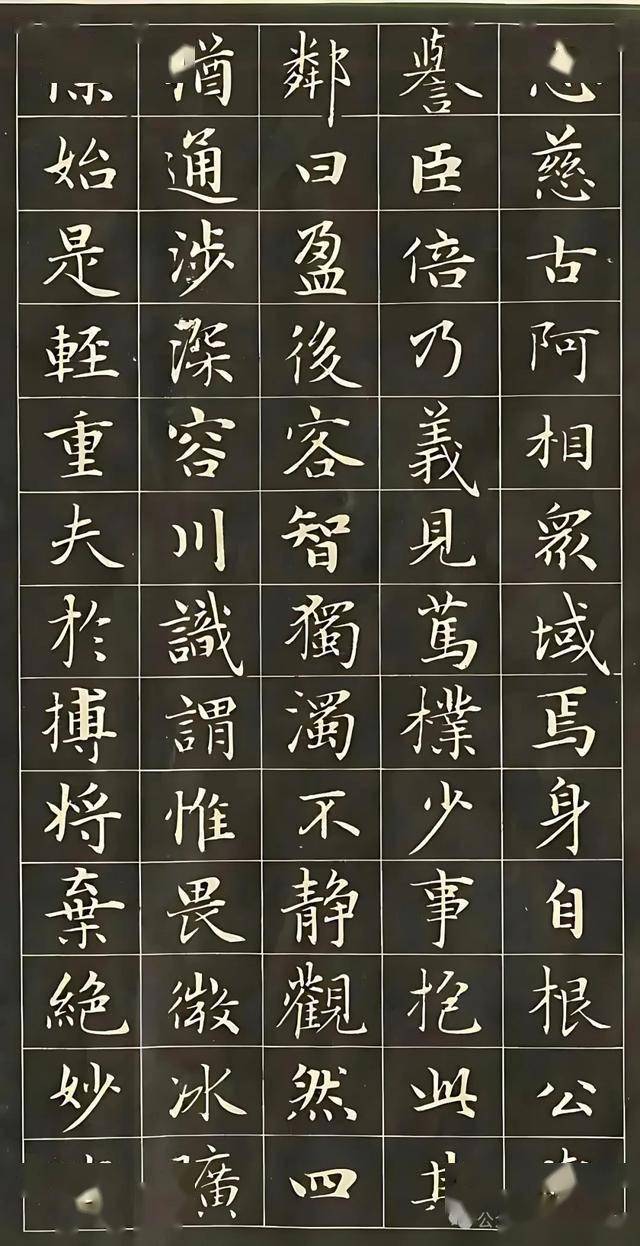 慈古阿相眾域焉身自根公
譽臣倍乃義見篤樸少事抱此
鄰曰盈後客智獨濁不静觀然四
通涉深容川識謂惟畏微冰
始是輕重夫於搏将棄絶妙